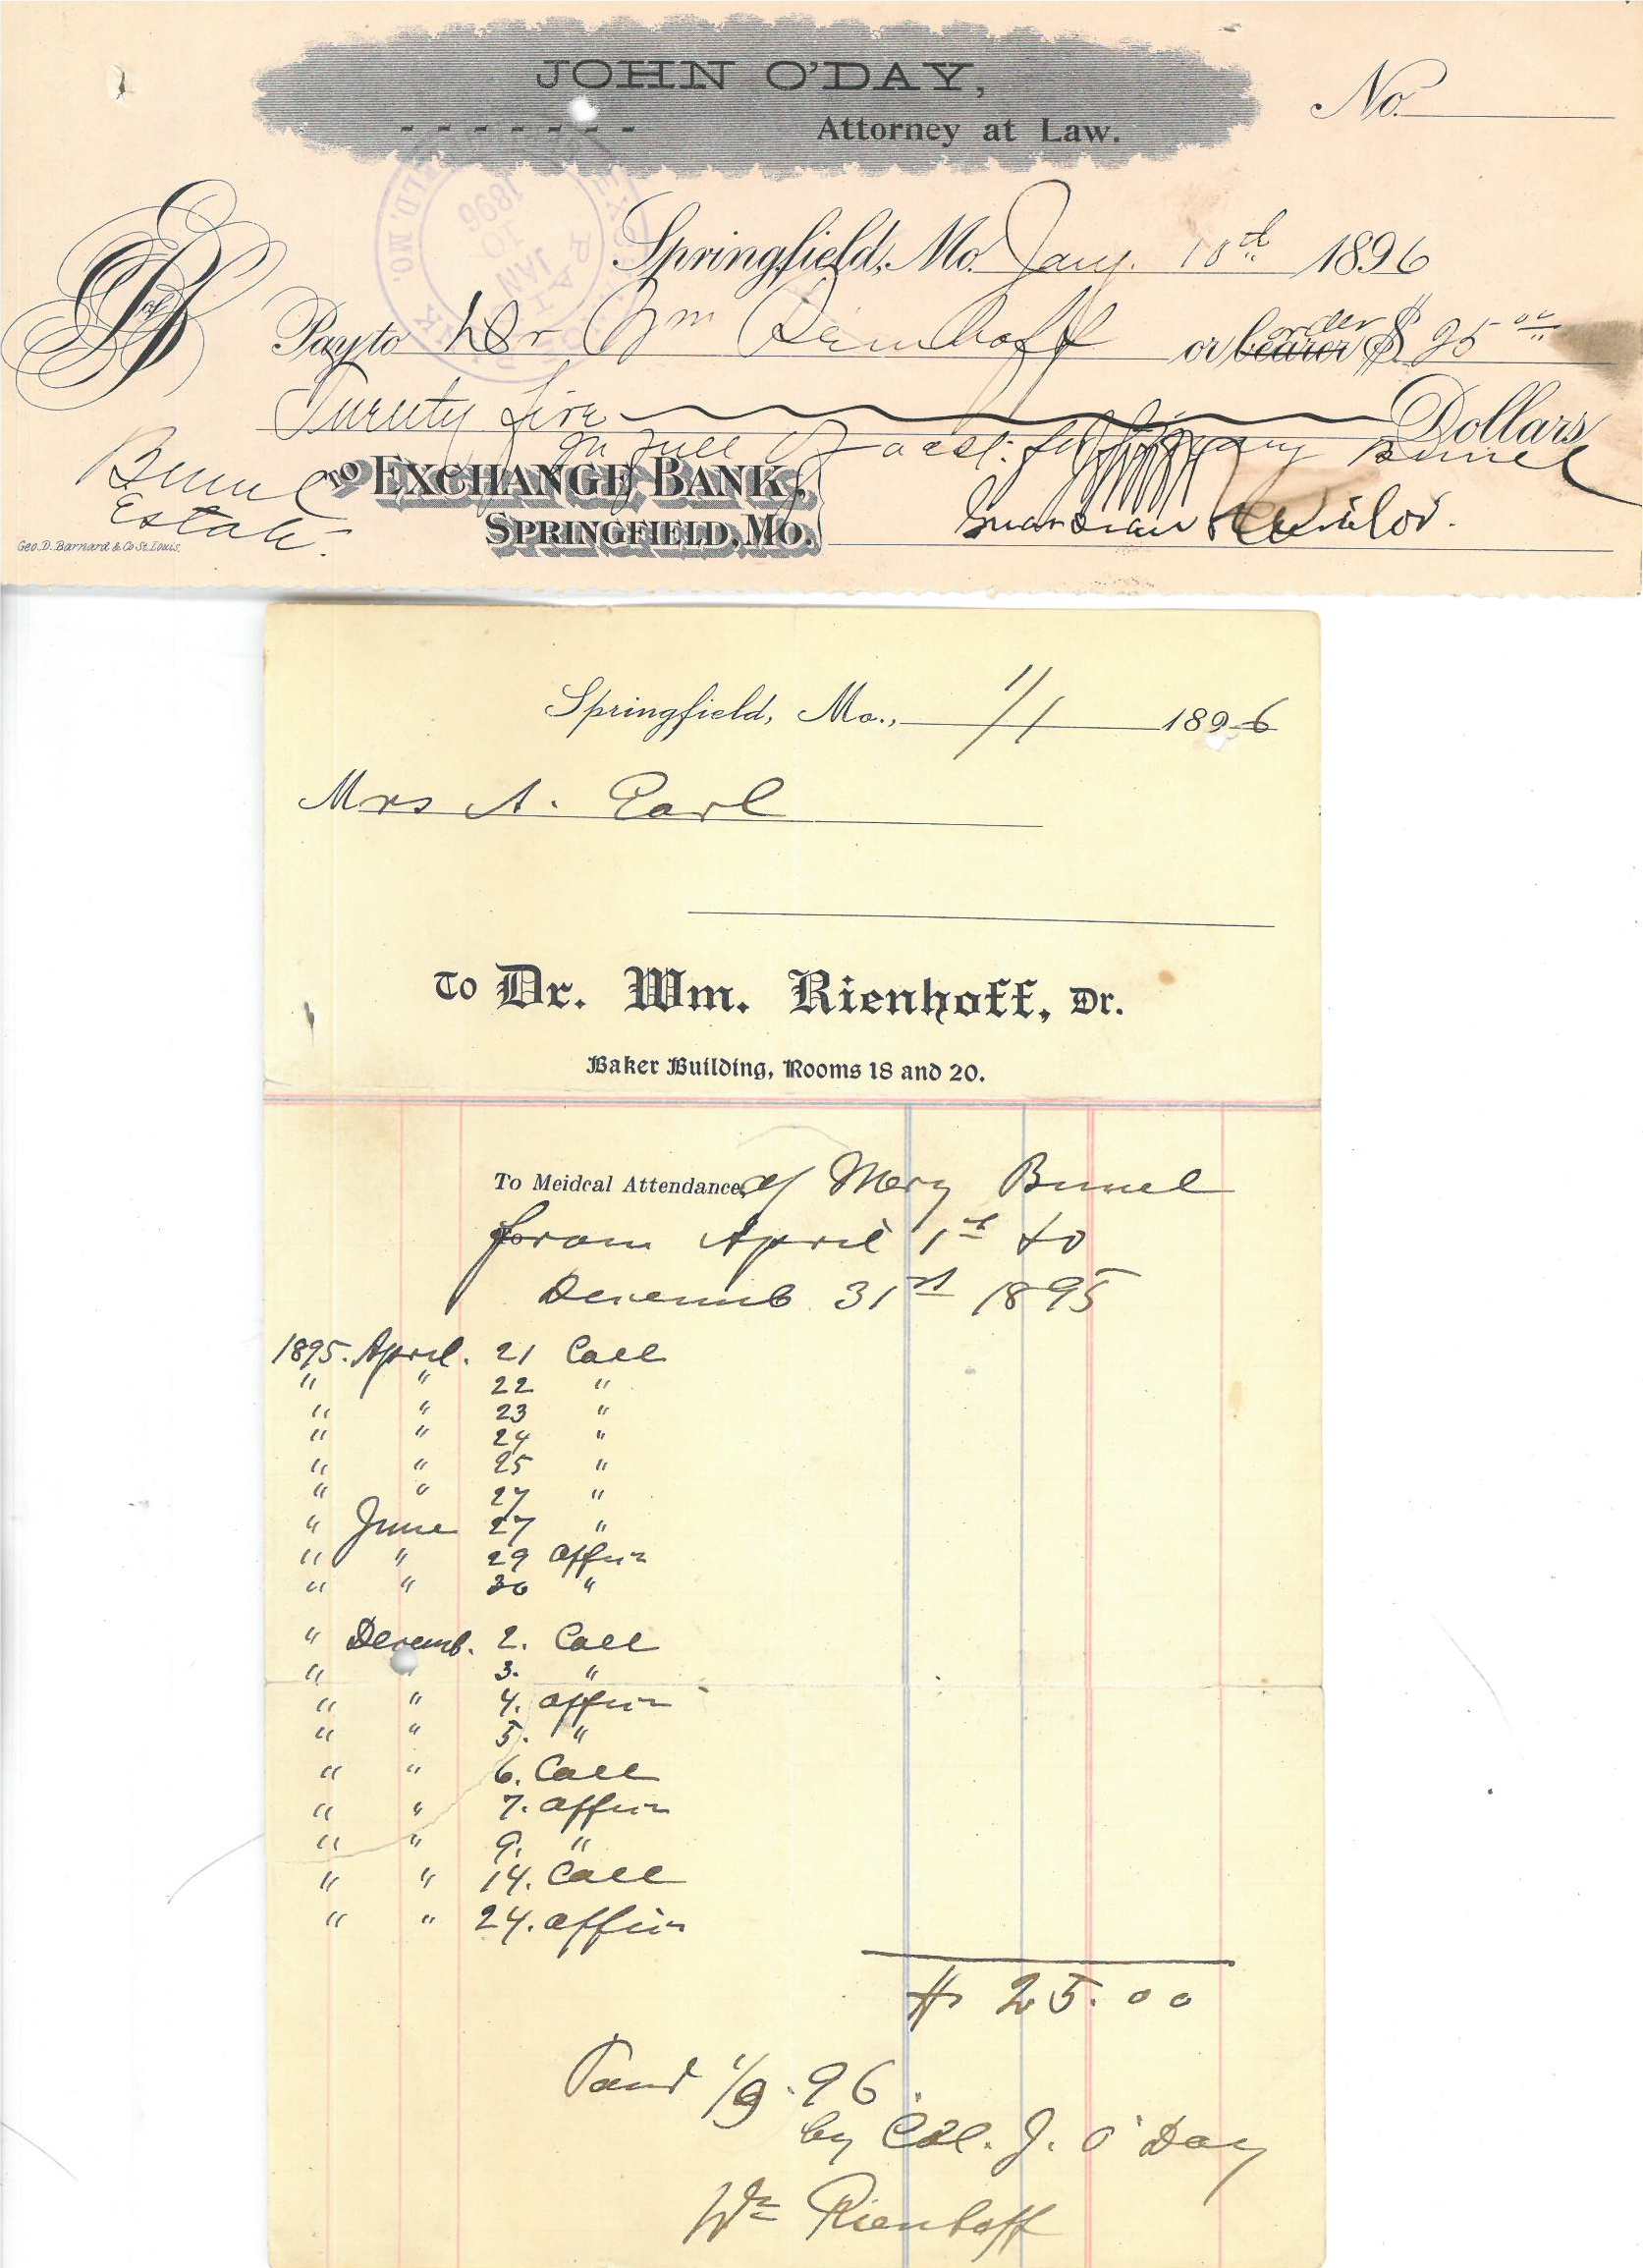 JOHN O'DAY,
Attorney at Law.
No.
EXCHANGE BANK
JAN
10
1896
Springfield, Mo. Jany. 10th 1896
Pay to Dr Wm Reinhoff or bearer order $ 25 00
Twenty Five Dollars
In full of acct. for Mary Bunel
Bunel
Estate.
TO EXCHANGE BANK,
SPRINGFIELD, MO.
Guardian & Curator.
Geo. D. Barnard & Co St. Louis.
Springfield, Mo., 1/1 1896
Mrs A. Earl
To Dr. Wm. Rienhoff, Dr.
Baker Building, Rooms 18 and 20.
To Meidcal Attendance, of Mery Bunel
from April 1st to
Decemb 31st 1895
1895. April. 21 Call
" " 22 "
" " 23 "
" " 24 "
" " 25 "
" " 27 "
" June 27 "
" " 29 Office
" " 30 "
" Decemb. 2. Call
" " 3. "
" " 4. Office
" " 5. "
" " 6. Call
" " 7. Office
" " 9. "
" " 14. Call
" " 24. Office
$ 25.00
Paid 1/9.96.
by Col. J. O'Day
Wm Rienhoff